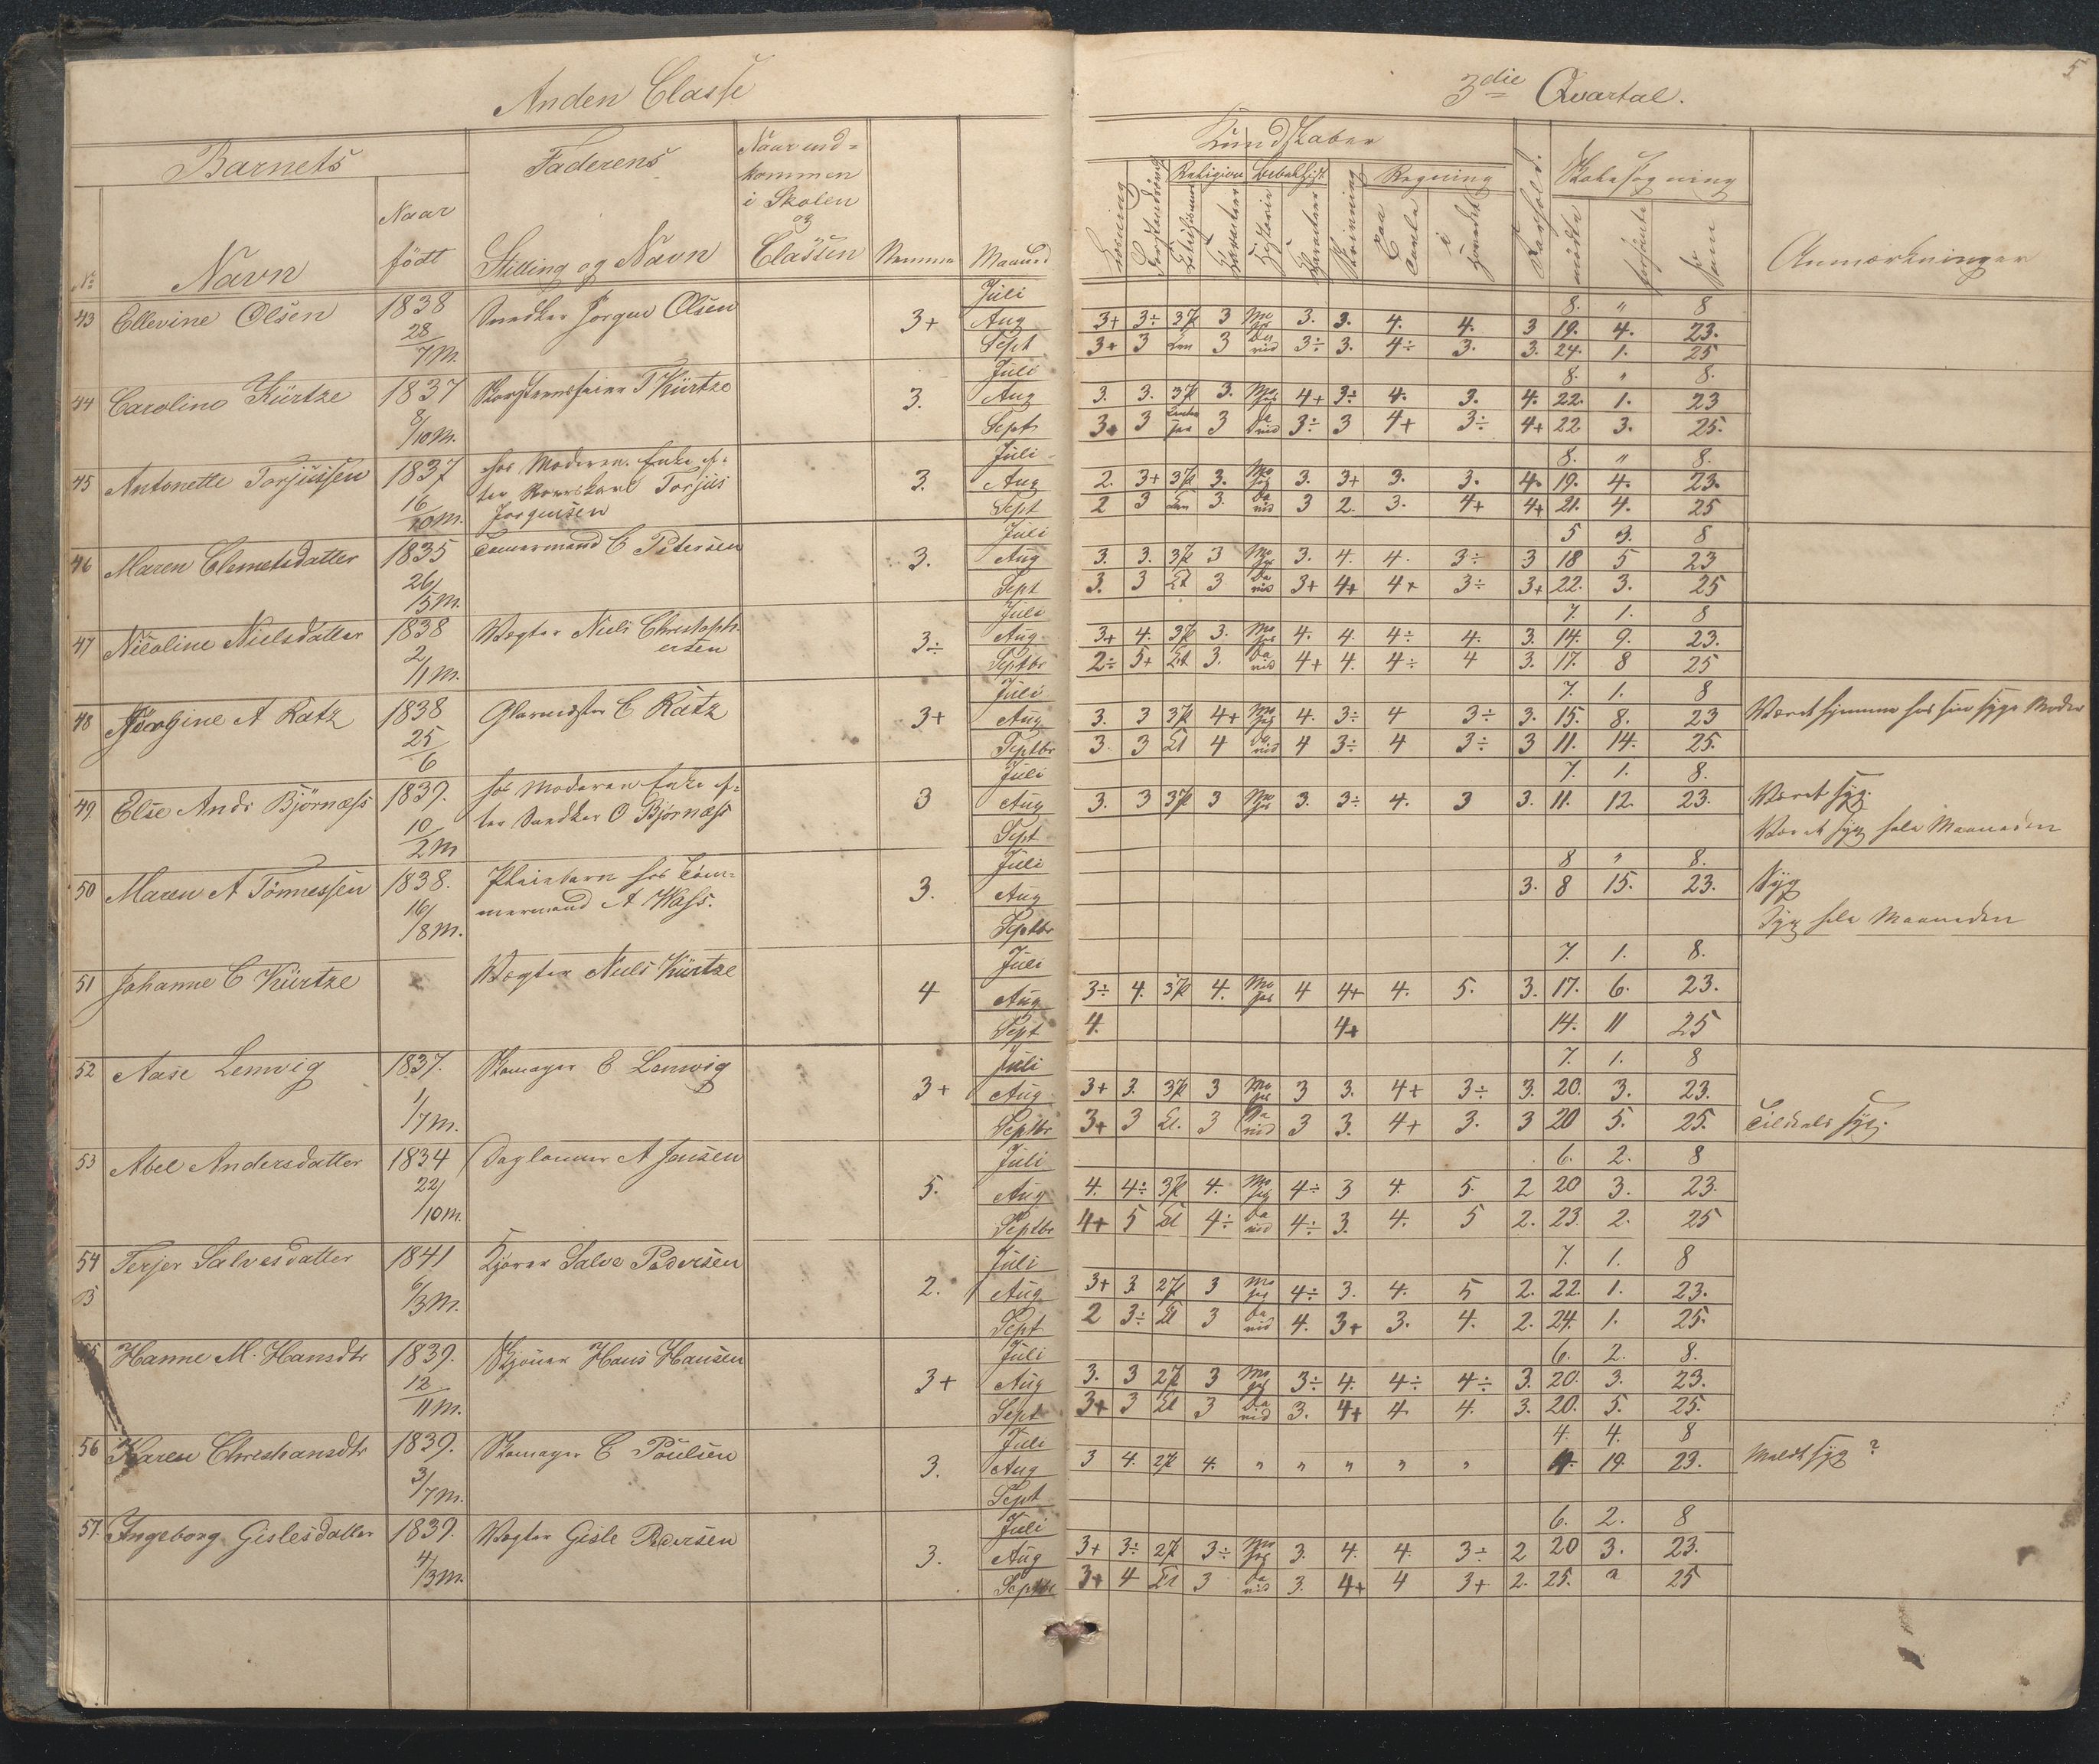 Anden Classe
Barnets
Faderens
Naar ind-
kommen
i Skolen
og
Classen
No
Navn
Naar
født
Stilling og Navn
Nemme
Maaned
43 Ellevine Olsen 1838 Snedker Jørgen Olsen 3+ Juli
28 Aug
7 M. Sept
44 Caroline Kürtze 1837 Skorsteensfeier T Kürtze 3. Juli
8 Aug
/10 M. Sept
45 Antonette Torjussen 1837 hos Moderen Enke ef- 3. Juli
16 ter Torjus Aug
10 M. Jørgensen Sept
46 Maren Clemetsdatter 1835 Tømermand C Petersen 3. Juli
26 Aug
/5 M. Sept
47 Nicoline Nielsdatter 1838 Vægter Niels Christoph- 3÷ Juli
2 ersen Aug
/1 M. Septbr
48 Jørgine A Rätz 1838 Glarmester C Rätz 3+ Juli
25 Aug
6 Septbr
49 Else Andr Bjørnæss 1839. hos Moderen Enke ef- 3 Juli
10 ter Snedker O Bjørnæss Aug
2 M Sept
50 Maren A Tønnessen 1838. Pleiebarn hos Tøm- 3. Juli
16 mermand A Wass. Aug
/8 M. Septbr
51 Johanne C Kürtze Vægter Niels Kürtze 4 Juli
Aug
Sept
52 Aase Lemvig 1837. Skomager E Lemvig 3+ Juli
1 Aug
/7 M. Septbr
53 Abel Andersdatter 1834 Daglønner A Jensen 5. Juli
22 Aug
/10 M. Septbr
54 Terjer Salvesdatter 1841 Kjører Salve Pedersen 2. Juli
6/3 M. Aug
Sept
55 Hanne M. Hansdtr 1839. Hans Hansen 3+ Juli
12 Aug
11 M. Sept
56 Karen Christiansdtr 1839. Skomager C Poulsen 3. Juli
3 Aug
/7 M. Sept
57. Ingeborg Gislesdatter 1839. Vægter Gisle Pedersen 3. Juli
4 Aug
/3 M. Septbr
5
3die Qvartal.
Kundskaber
Religion
Regning
Læsning
Forstandsøv.
Karakteer
Historie
Karakteer
Skrivning
Paa Tavle
i Hovedet
Forhold.
Skolesøgning
mødte
forsømte
Sum
Anmærkninger
8. " 8
3+ 3÷ 3 Mo ses 3. 3. 4. 4. 3 19. 4. 23.
3+ 3 3 Da vid 3÷ 3. 4÷ 3. 3. 24. 1. 25
8. " 8.
3. 3. 3. Mo ses 4+ 3÷ 4. 3. 4. 22. 1. 23
3+ 3 3 Da vid 3÷ 3 4+ 3÷ 4+ 22 3. 25.
8. " 8.
2. 3+ 3. Mo ses 3. 3+ 3. 3. 4. 19. 4. 23.
2 3 3. Da vid 3 2. 3. 4+ 4+ 21. 4. 25
5 3. 8
3. 3. 3 Mo ses 3. 4. 4. 3÷ 3 18 5 23
3. 3 3 Da vid 3+ 4+ 4+ 3÷ 3+ 22. 3. 25
7. 1. 8
3+ 4. 3. Mo ses 4. 4. 4÷ 4. 3. 14. 9. 23.
2÷ 5+ 3. Da vid 4+ 4. 4÷ 4 3. 17. 8 25
7. 1. 8
3. 3 4+ Mo ses 4. 3÷ 4 3÷ 3. 15. 8. 23 Været hjemme hos sin syge Moder
3. 3 4 Da vid 4 3÷ 4 3÷ 3 11. 14. 25.
7. 1. 8.
3. 3 3 Mo ses 3. 3÷ 4. 3 3. 11. 12. 23. Været syg.
Været syg hele Maaneden
8 " 8.
3. 8 15. 23. Syg
Syg hele Maaneden
7. 1. 8.
3÷ 4. 4. Mo ses 4 4+ 4. 5. 3. 17. 6. 23.
4. 4+ 14. 11 25
7. 1. 8
3+ 3. 3 Mo ses 3 3. 4+ 3÷ 3. 20. 3. 23.
3+ 3 3 Da vid 3 3. 4+ 3. 3 20 5. 25. Tildeels syg.
6. 2. 8
4. 4÷ 4. Mo ses 4÷ 3 4. 5. 2 20 3. 23.
4+ 5 4÷ Da vid 4÷ 3. 4. 5 2. 23. 2. 25
7. 1. 8
3+ 3. 3 Mo ses 4÷ 3. 4. 5 2. 22. 1. 23.
2 3÷ 3 Da vid 4. 3+ 3. 4. 2. 24. 1. 25.
6. 2. 8.
3. 3 3 Mo ses 3÷ 4. 4÷ 4÷ 3. 20. 3. 23.
3+ 3 3 Da vid 3. 4+ 4. 4. 3. 20. 5. 25.
4. 4. 8
3 4. 4. " " " " " 4. 19. 23. Meldt syg?
6. 2. 8
3+ 3÷ 3÷ Mo ses 3. 4. 4. 3÷ 2 20 3. 23.
3+ 4 3 Da vid 3. 4+ 4 3+ 2. 25. " 25